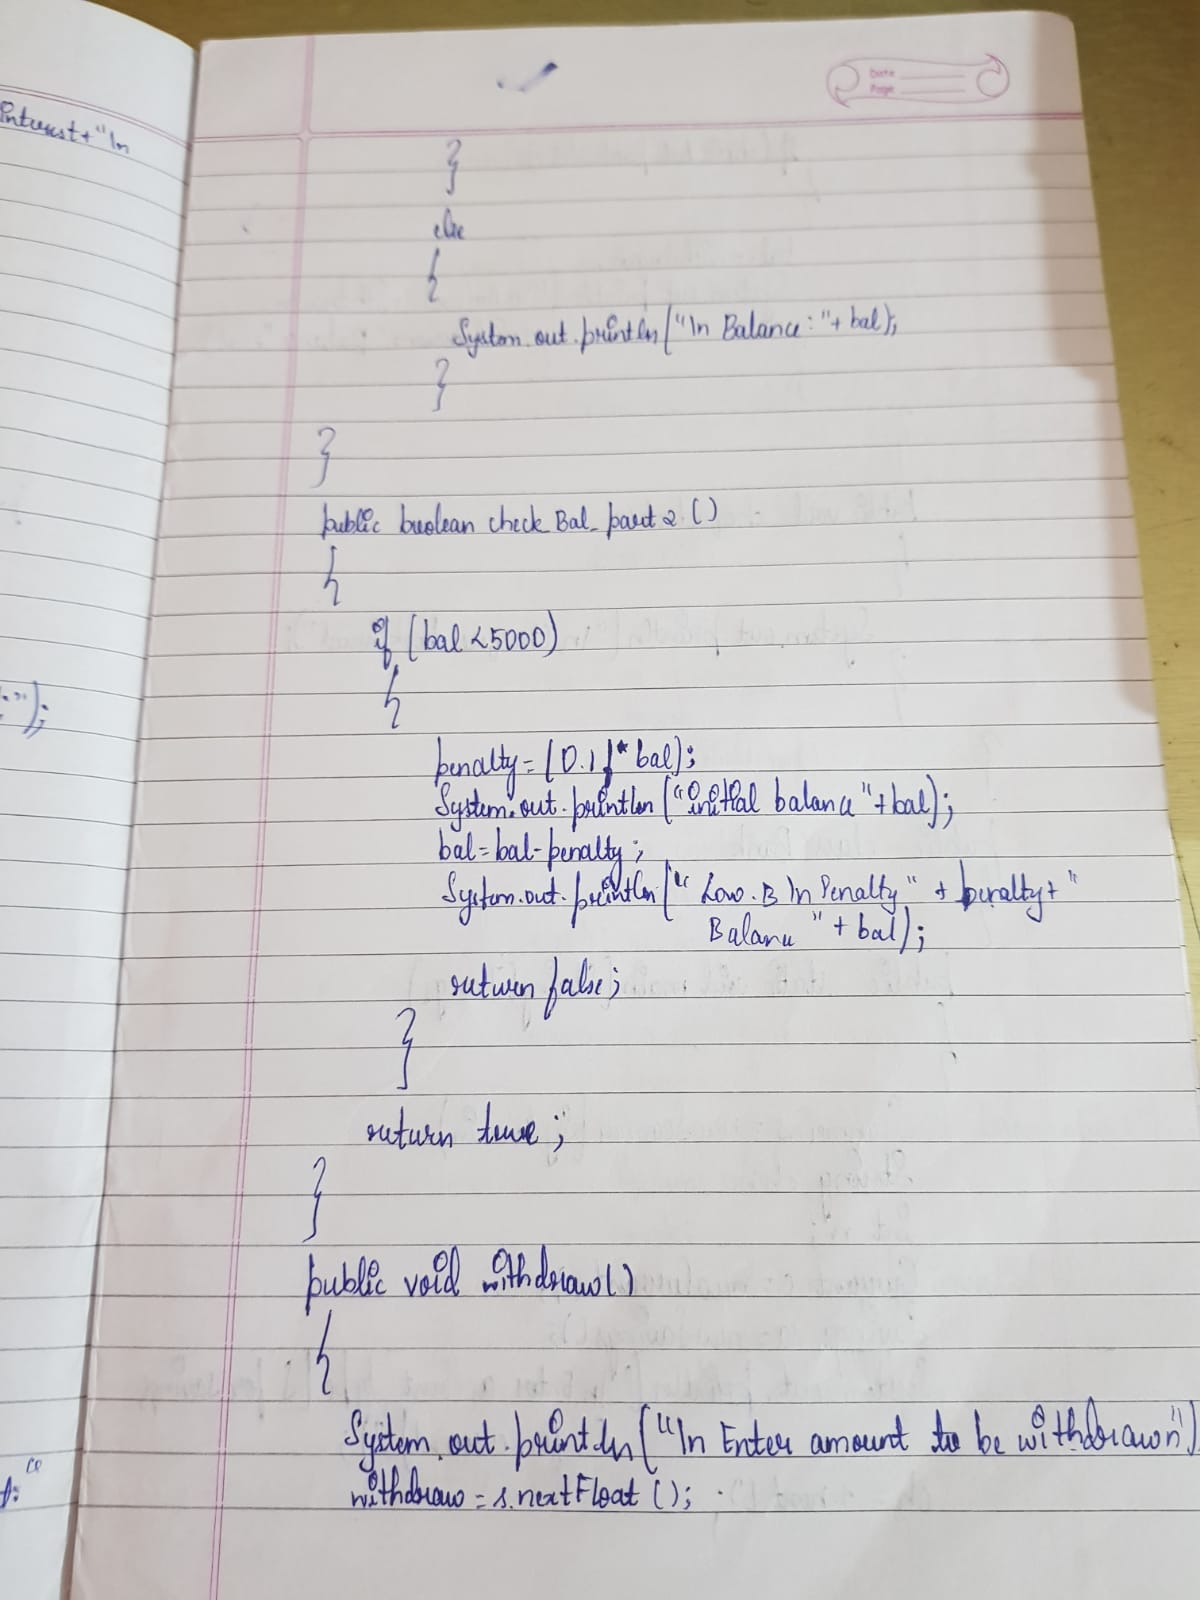 Interest+"\n
Date
Page
}
else
{
System.out.println("\n Balance: "+ bal);
}
}
public boolean check Bal_part2 ()
{
if (bal <5000)
{
penalty = (0.1f* bal);
System.out.println("initial balance "+bal);
bal=bal-penalty;
System.out.println(" Low.B \n Penalty" + penalty+"
Balance "+ bal);
return false;
}
return true;
}
public void withdraw()
{
System.out.println("\n Enter amount to be withdrawn")
withdraw = s.nextFloat ();